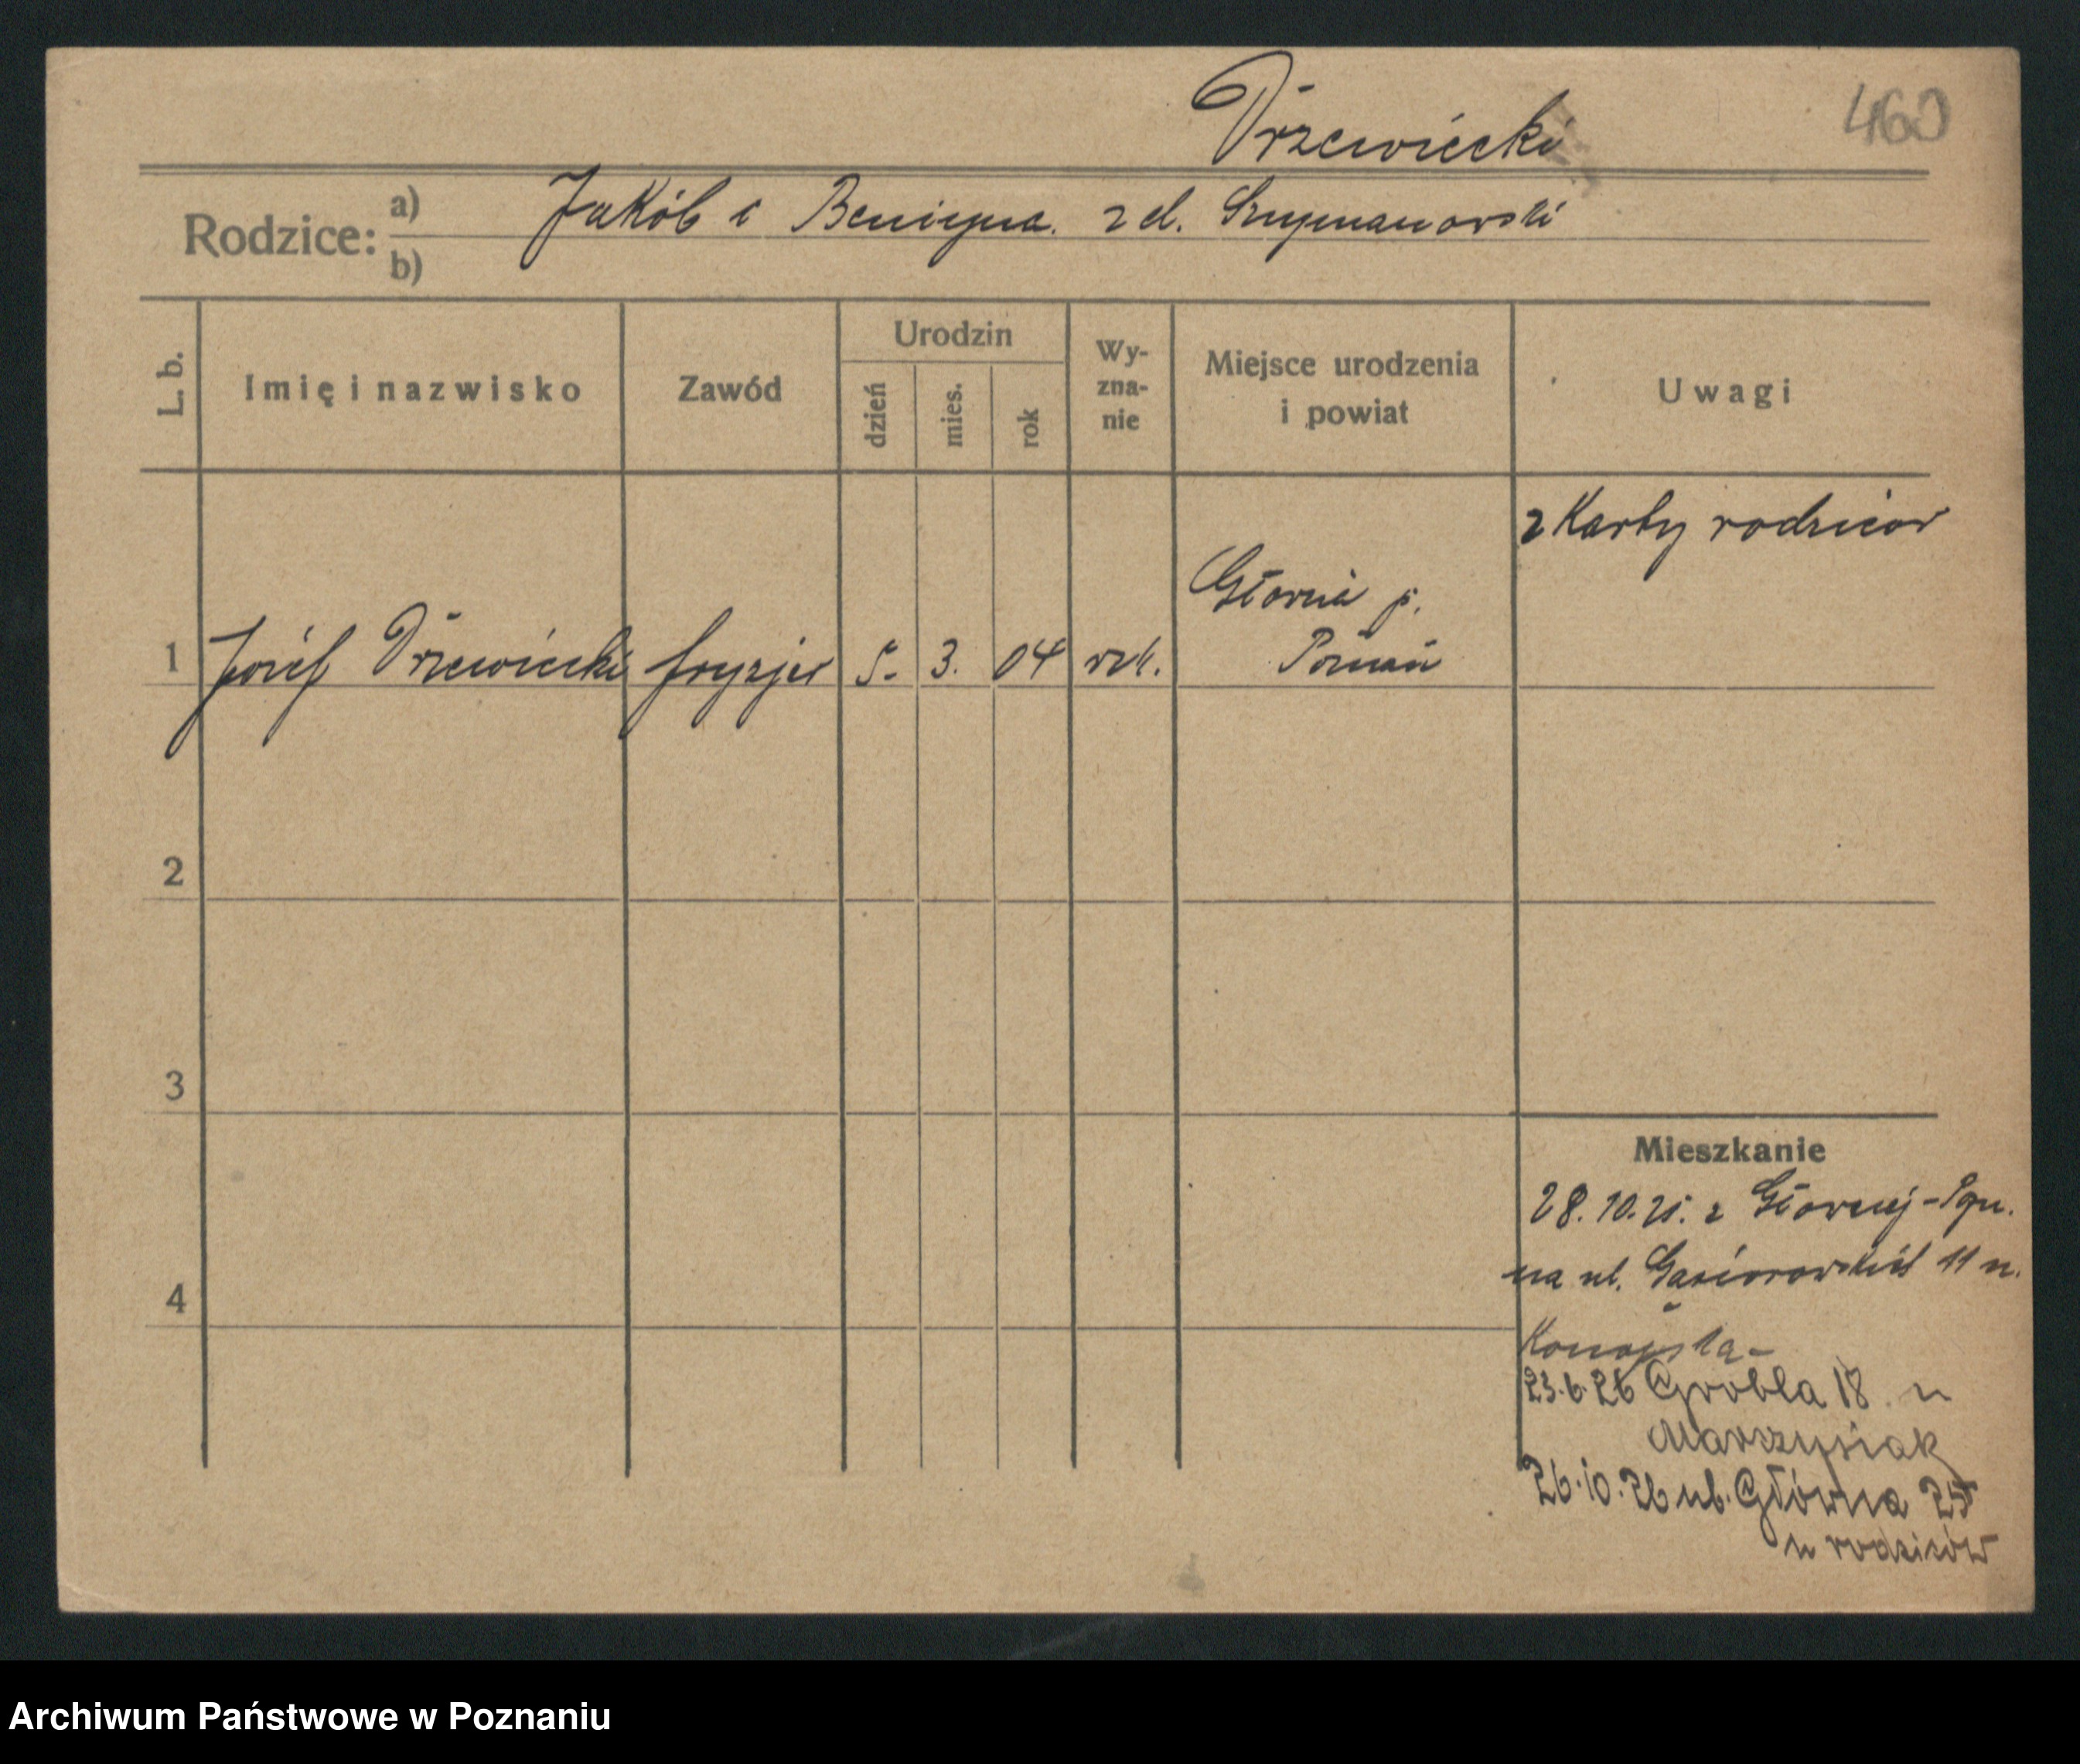 Drzewiecki
460
Rodzice:
a) Jakób i Benigna. z d. Szymanowski
b)
L. b.
Imię i nazwisko
Zawód
Urodzin
dzień
mies.
rok
Wy-
zna-
nie
Miejsce urodzenia
i powiat
Uwagi
z Karty rodziców
1 Józef Drzewiecki fryzjer 5. 3. 04 rzk. Główna p.
Poznań
2
3
4
Mieszkanie
28.10.25. z Głównej - Pozn.
na ul. Gąsiorowskich 11 u.
23.6.26 Grobla 18 u
Marszysiak
26.10.26 ul. Główna 25
u rodziców
Archiwum Państwowe w Poznaniu